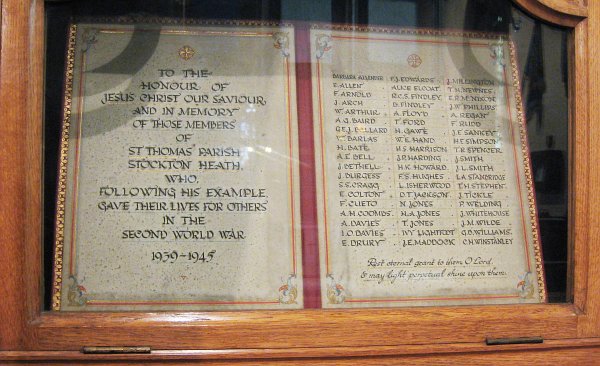 TO THE
HONOUR OF
JESUS CHRIST OUR SAVIOUR,
AND IN MEMORY
OF THOSE MEMBERS
OF
ST THOMAS' PARISH
STOCKTON HEATH,
WHO,
FOLLOWING HIS EXAMPLE,
GAVE THEIR LIVES FOR OTHERS
IN THE
SECOND WORLD WAR
1939-1945
BARBARA F.J. EDWARDS J. MILLINGTON
E. ALLEN ALICE ELCOAT T.H. NEWNES
F. ARNOLD R.C.S. FINDLEY
J. ARCH D. FINDLEY J.W. PHILLIPS
W. ARTHUR A. FLOYD A. REGAN
A.G. BAIRD T. FORD F. RUDD
H. GAWE J.E. SANKEY
W. BARLAS W.E. HAND H.E. SIMPSON
H. BATE H.S. HARRISON T.R. SPENCER
A.E. BELL J.P. HARDING J. SMITH
J. BETHELL H.K. HOWARD J.L. SMITH
J. BURGESS F.S. HUGHES L.A. STANDRIDGE
S.S. CRAGG L. ISHERWOOD T.H. STEPHEN
E. COLTON D.T. JACKSON J. TICKLE
F. CUETO N. JONES P. WELDING
A.H. COOMBS H.A. JONES J. WHITEHOUSE
A. DAVIES T. JONES J.M. WILDE
I.O. DAVIES IVY LIGHTFOOT G.B. WILLIAMS
E. DRURY J.E. MADDOCK C.H. WINSTANLEY
Rest eternal grant to them O Lord,
& may light perpetual shine upon them.